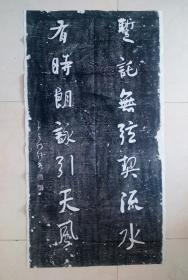 暫託無弦契流水
有時朗詠引天風